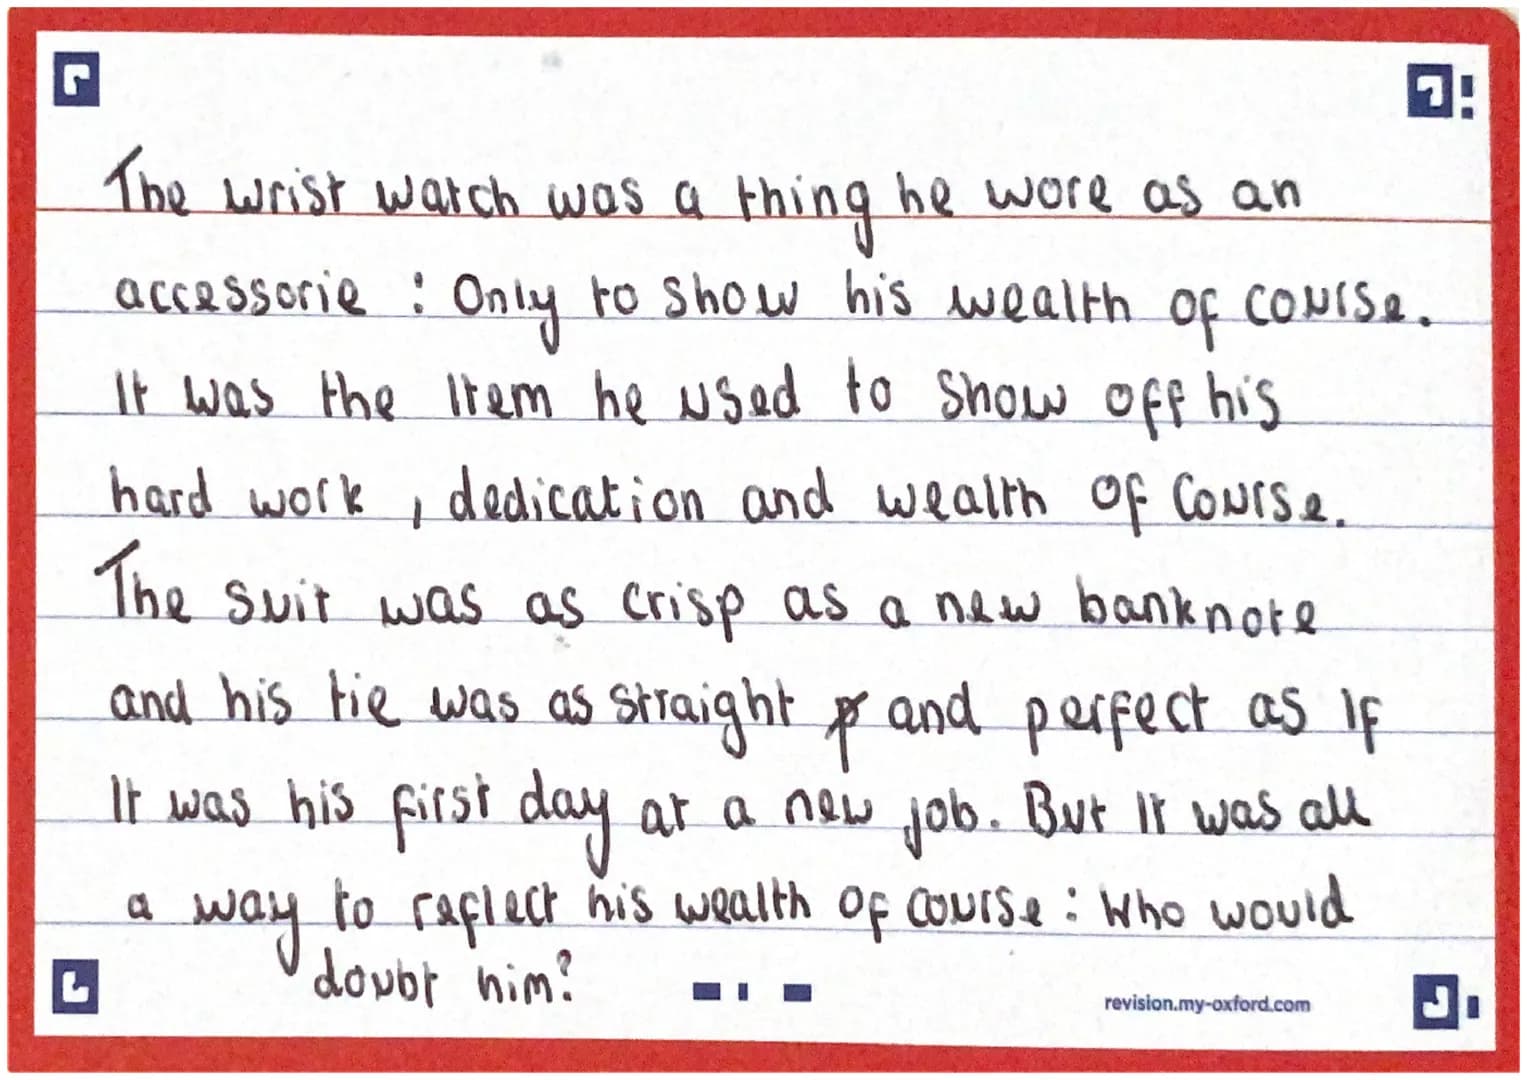 The wrist watch was a thing he wore as an
accessorie : Only to show his wealth of course.
It was the Item he used to show off his
hard work , dedication and wealth of Course.
The suit was as crisp as a new banknote
and his tie was as straight and perfect as If
It was his first day at a new job. But It was all
a way to reflect his wealth of course : Who would
doubt him?
revision.my-oxford.com